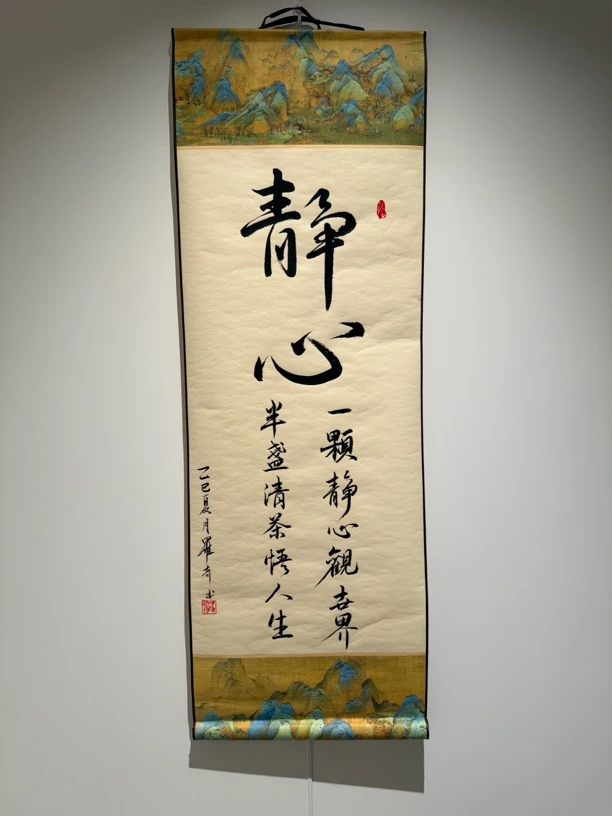 静心
一顆静心觀世界
半盞清茶悟人生
乙巳夏月羅奇书